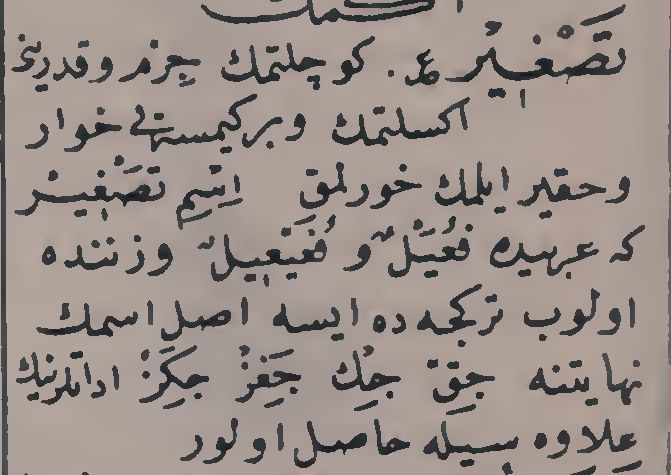 تَصْغِيرْ ع. كوچلتمك جِرم وقدرینی
اکسلتمك وبرکیمسه‌یی خوار
وحقیر ایلمك خورلمق اِسْمِ تَصْغِیر
که عربیده فُعَیْلٌ و فُعَیْعِیلٌ وزننده
اولوب ترکجه‌ده ایسه اصل اسمك
نهایتنه جِقْ جِكْ جَغَزْ جِكَزْ اداتلرینك
علاوه سیله حاصل اولور